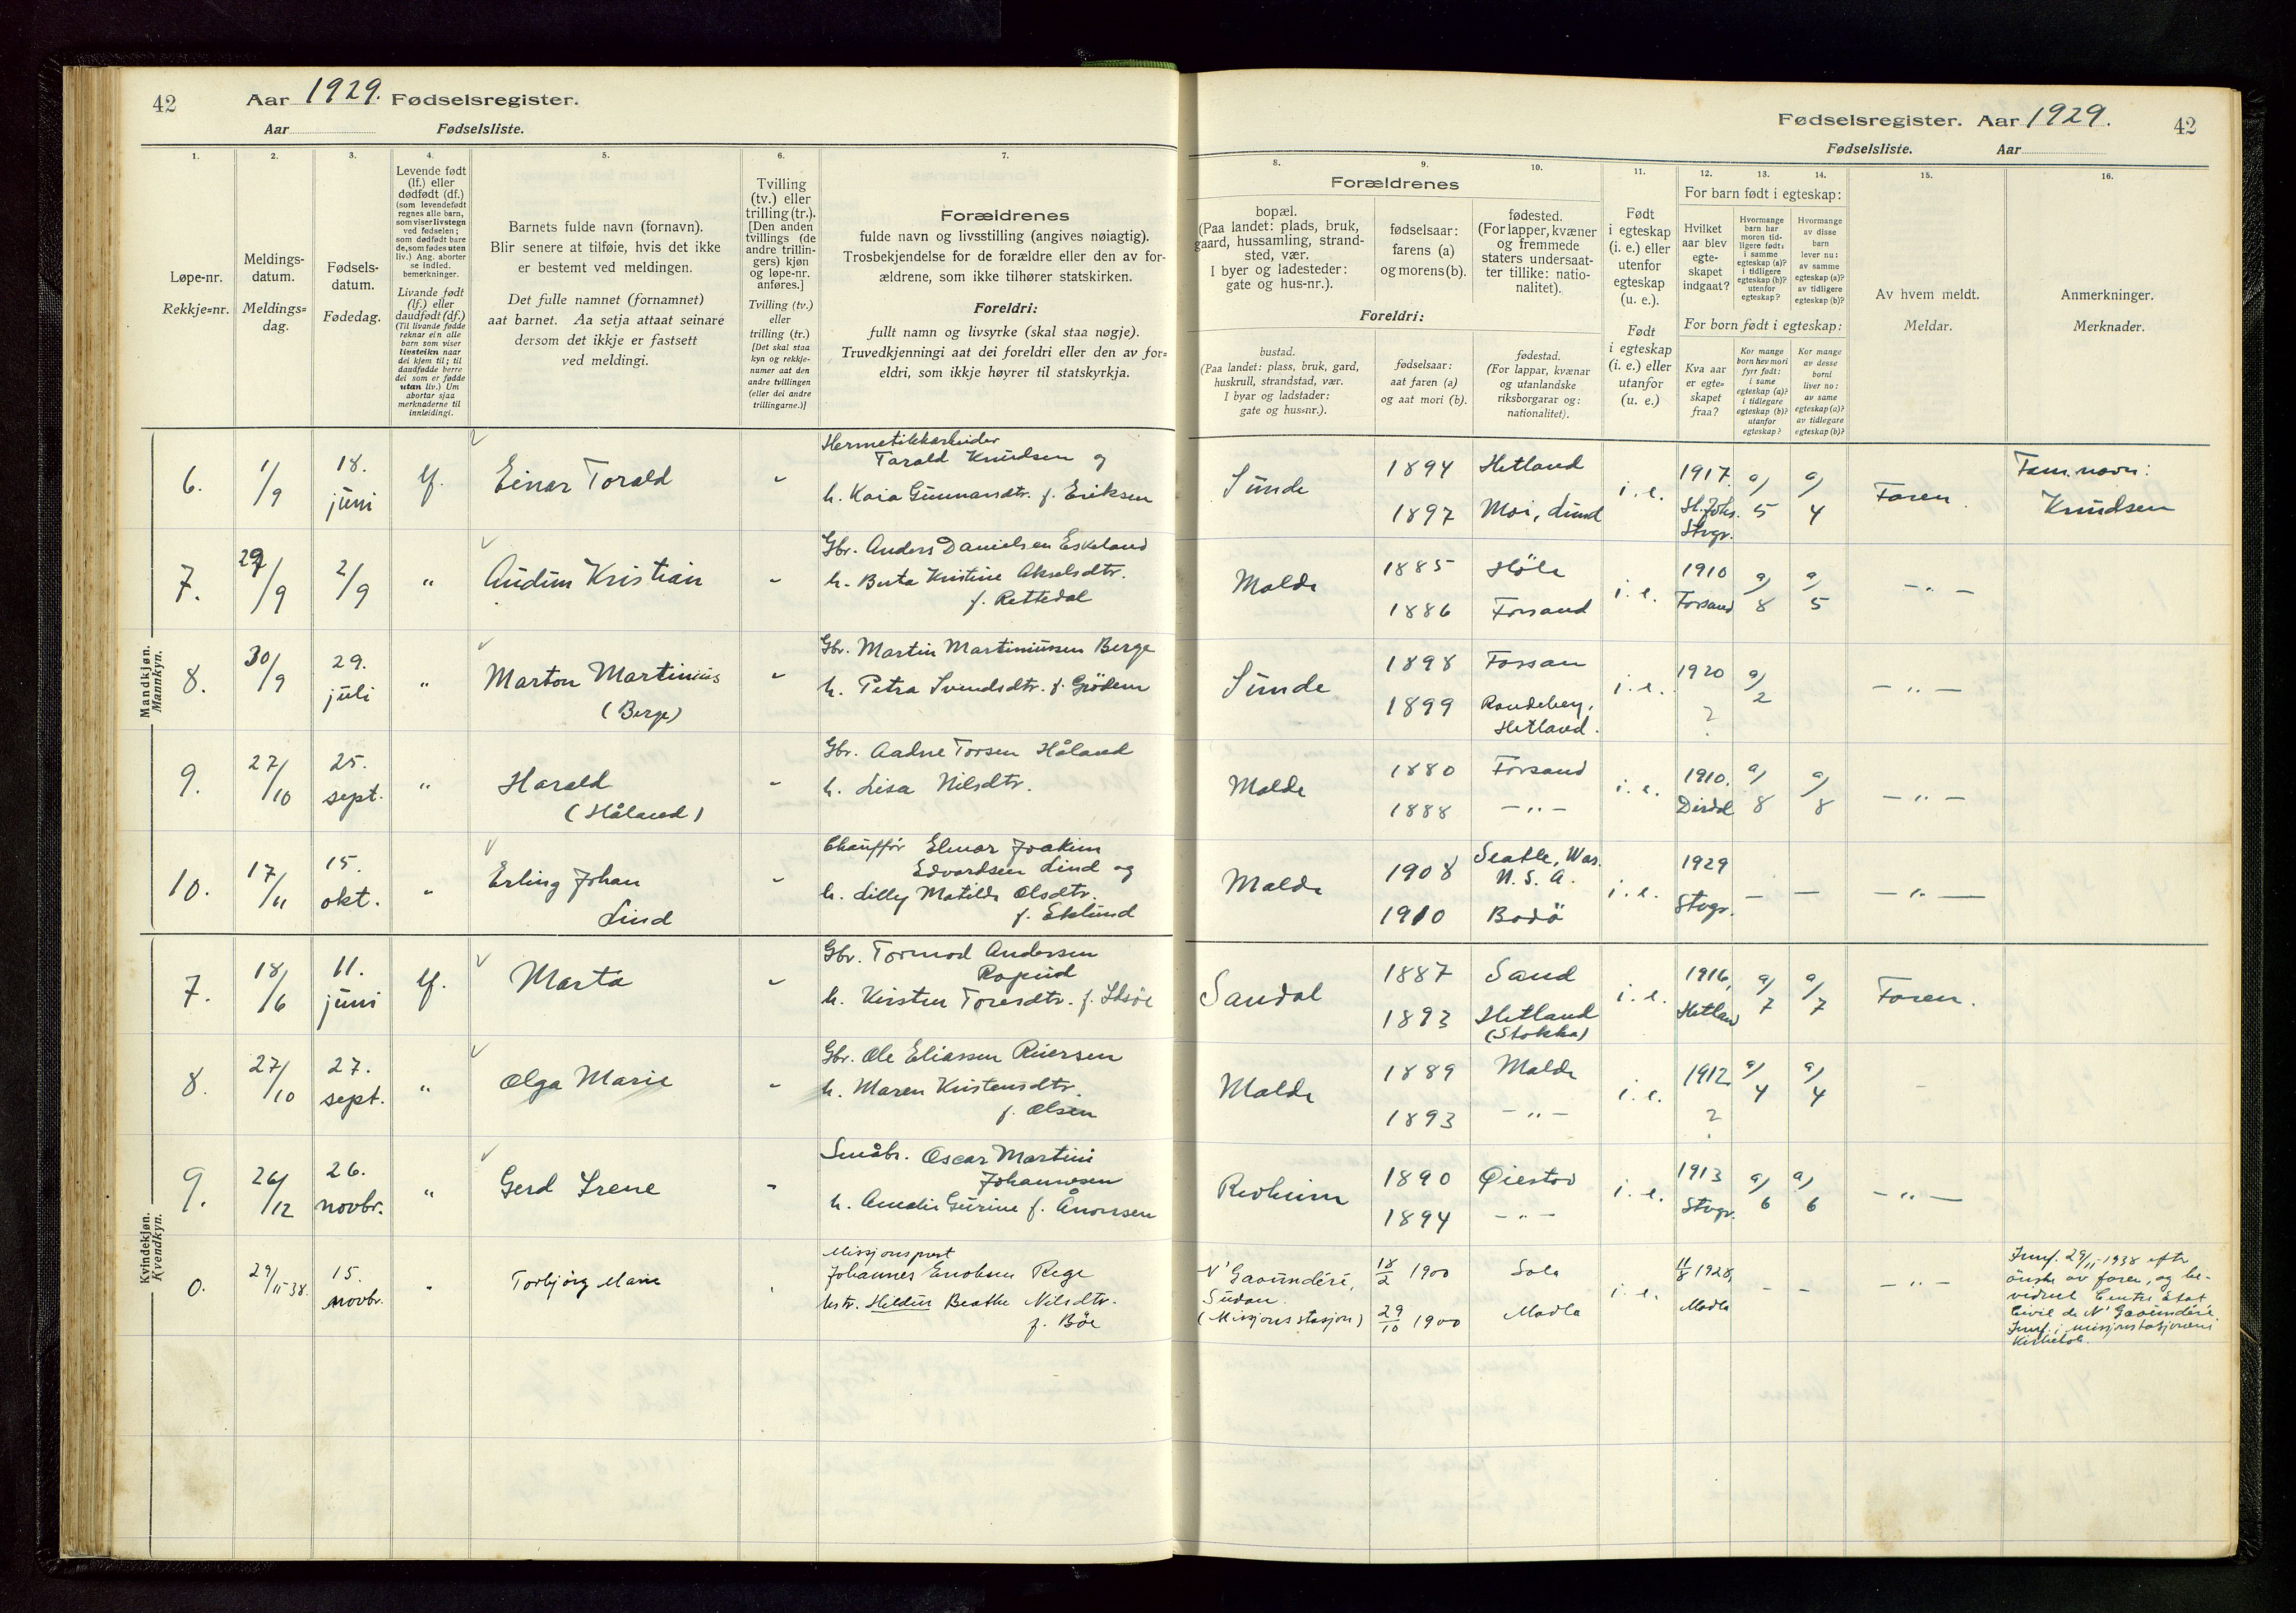 42
Aar 1929. Fødselsregister.
Aar Fødselsliste.
Fødselsregister. Aar 1929.
42
Fødselsliste. Aar
1.
Løpe-nr.
Rekkje-nr.
2.
Meldings-
datum.
Meldings-
dag.
3.
Fødsels-
datum.
Fødedag.
4.
Levende født
(lf.) eller
dødfødt (df.)
(som levendefødt
regnes alle barn,
som viser livstegn
ved fødselen;
som dødfødt bare
de, som fødes uten
liv.) Ang. aborter
se indled.
bemerkninger.
Livande født
(lf.) eller
daudfødt (df.)
(Til livande fødde
reknar ein alle
barn som viser
livsteikn naar
dei kjem til; til
daudfødde berre
dei som er fødde
utan liv.) Um
abortar sjaa
merknaderne til
innleidingi.
5.
Barnets fulde navn (fornavn).
Blir senere at tilføie, hvis det ikke
er bestemt ved meldingen.
Det fulle namnet (fornamnet)
aat barnet. Aa setja attaat seinare
dersom det ikkje er fastsett
ved meldingi.
6.
Tvilling
(tv.) eller
trilling (tr.).
[Den anden
tvillings (de
andre trillin-
gers) kjøn
og løpe-nr.
anføres.]
Tvilling (tv.)
eller
trilling (tr.)
[Det skal staa
kyn og rekkje-
numer aat den
andre tvillingen
(eller dei andre
trillingarne.)]
7.
Forældrenes
fulde navn og livsstilling (angives nøiagtig).
Trosbekjendelse for de forældre eller den av for-
ældrene, som ikke tilhører statskirken.
Foreldri:
fullt namn og livsyrke (skal staa nøgje).
Truvedkjenningi aat dei foreldri eller den av for-
eldri, som ikkje høyrer til statskyrkja.
8.
Forældrenes
bopæl.
(Paa landet: plads, bruk,
gaard, hussamling, strand-
sted, vær.
I byer og ladesteder:
gate og hus-nr.).
Foreldri:
bustad.
(Paa landet: plass, bruk, gard,
huskrull, strandstad, vær.
I byar og ladstader:
gate og hus-nr.).
9.
fødselsaar:
farens (a)
og morens (b).
fødselsaar:
aat faren (a)
og aat mori (b).
10.
fødested.
(For lapper, kvæner
og fremmede
staters undersaat-
ter tillike: natio-
nalitet).
fødestad.
(For lappar, kvænar
og utanlandske
riksborgarar og:
nationalitet).
11.
Født
i egteskap
(i. e.) eller
utenfor
egteskap
(u. e.).
Født
i egteskap
(i. e.) eller
utanfor
(u. e.)
12. 13. 14.
For barn født i egteskap:
Hvilket
aar blev
egte-
skapet
indgaat?
Hvormange
barn har
moren tid-
ligere født:
i samme
egteskap (a)?
i tidligere
egteskap (b)?
utenfor
egteskap?
Hvormange
av disse
barn
lever nu:
av samme
egteskap (a)?
av tidligere
egteskap (b)?
For born født i egteskap:
Kva aar
er egte-
skapet
fraa?
Kor mange
born hev mori
fyrr født:
i same
egteskap (a)?
i tidlegare
egteskap (b)?
utanfor
egteskap?
Kor mange
av desse
borni
liver no:
av same
egteskap (a)?
av tidlegare
egteskap (b)?
15.
Av hvem meldt.
Meldar.
16.
Anmerkninger.
Merknader.
Mandkjøn.
Mannkyn.
6. 1/9 18. juni lf. Einar Torald
Hermetikkarbeider
Tarald Knudsen og
h. Kaia Gunnarsdtr. f. Eriksen
Sunde 1894 Hetland
1897 Moi, Lund
i. e. 1917. St. Johs. Stvgr. a) 5 a) 4 Faren. Fam.navn:
Knudsen
7. 29/9 2/9 " Audun Kristian
Gbr. Anders Danielsen Eskeland
h. Berta Kristine Akselsdtr.
f. Rettedal
Malde 1885 Høle
1886 Forsand
i. e. 1910 Forsand a) 8 a) 5 - " -
8. 30/9 29. juli " Marton Martinius
(Berge)
Gbr. Martin Martiniussen Berge
h. Petra Svendsdtr. f. Grödem
Sunde 1898 Fossan
1899 Randeberg,
Hetland.
i. e. 1920 ? a) 2 - " -
9. 27/10 25. sept. " Harald
(Håland)
Gbr. Aadne Torsen Håland
h. Lisa Nilsdtr.
Malde 1880 Forsand
1888 - " -
i. e. 1910. Dirdal a) 8 a) 8 - " -
10. 17/11 15. okt. " Erling Johan
Lind
Chauffør Elmar Joakim
Edvardsen Lind og
h. Lilly Matilde Olsdtr.
f. Eklund
Malde 1908 Seatle, Was.
U. S. A.
1910 Bodö
i. e. 1929 Stvgr. - - - " -
Kvindekjøn.
Kvendkyn.
7. 18/6 11. juni lf. Marta
Gbr. Tormod Andersen
Ropeid
h. Kirsten Toresdtr. f. Idsøe
Sandal 1887 Sand
1893 Hetland
(Stokka)
i. e. 1916, Hetland a) 7 a) 7 Faren.
8. 27/10 27. sept. " Olga Marie
Gbr. Ole Eliassen Reiersen
h. Maren Kristensdtr.
f. Olsen
Malde 1889 Malde
1893 - " -
i. e. 1912 ? a) 4 a) 4 -
9. 26/12 26. novbr. " Gerd Irene
Småbr. Oscar Martini
Johannesen
h. Amalie Gurine f. Ånonsen
Revheim 1890 Øiestad
1894 - " -
i. e. 1913 Stvgr. a) 6 a) 6 - " -
0. 29/11 38. 15. novbr. " Torbjörg Marie
Missjonsprest
Johannes Enoksen Rege
hstr. Heldine Beathe Nilsdtr.
f. Böe
N'Gaoundéré,
Sudan
(Missjonsstasjon)
18/2 1900 Sola
29/10 1900 Madla
i. e. 11/8 1928, Madla - - - " -
Innf. 29/11-1938 efter
önske av faren, og be-
vidnet Centre Etat
Civil de N'Gaoundéré
Innf. i missjonsstasjonens
kirkebok.